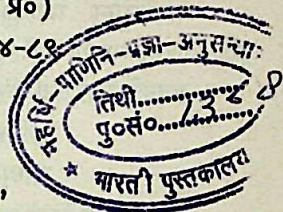 प्र०)
४-८९
महर्षि-पाणिनि-प्रज्ञा-अनुसन्धा
तिथी..............
पु०सं०..............
भारती पुस्तकालय
,